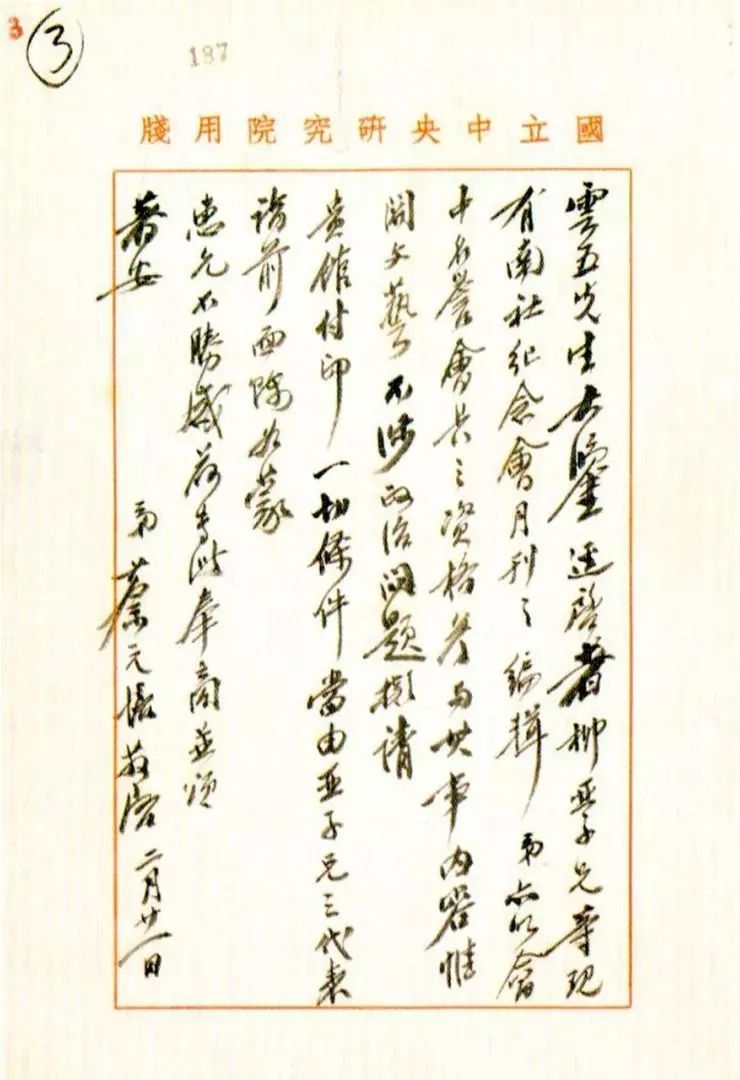 3
3
187
國立中央研究院用牋
雲五先生大鑒逕啓者柳亞子兄等現
有南社紀念會月刊之編輯弟亦以會
中名譽會長之資格參與其事內容惟
關文藝不涉政治問題擬請
貴館付印一切條件當由亞子兄之代表
詣前面陳如蒙
惠允不勝感荷專此奉商並頌
著安
弟蔡元培敬啓二月廿一日